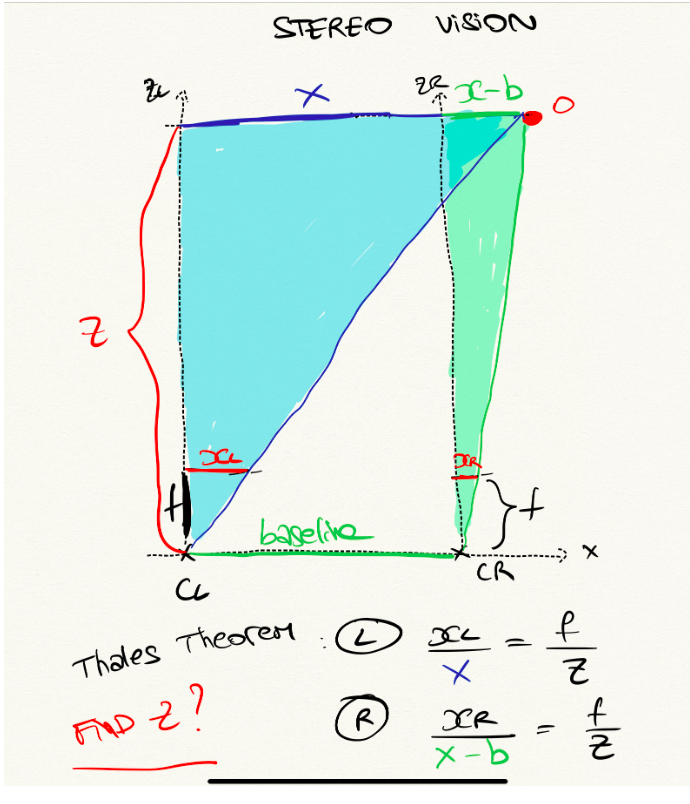 STEREO VISION
ZL
X
ZR
x-b
O
Z
xL
xR
f
f
baseline
x
CL
CR
Thales Theorem : L xL/X = f/Z
FIND Z?
R xR/X-b = f/Z